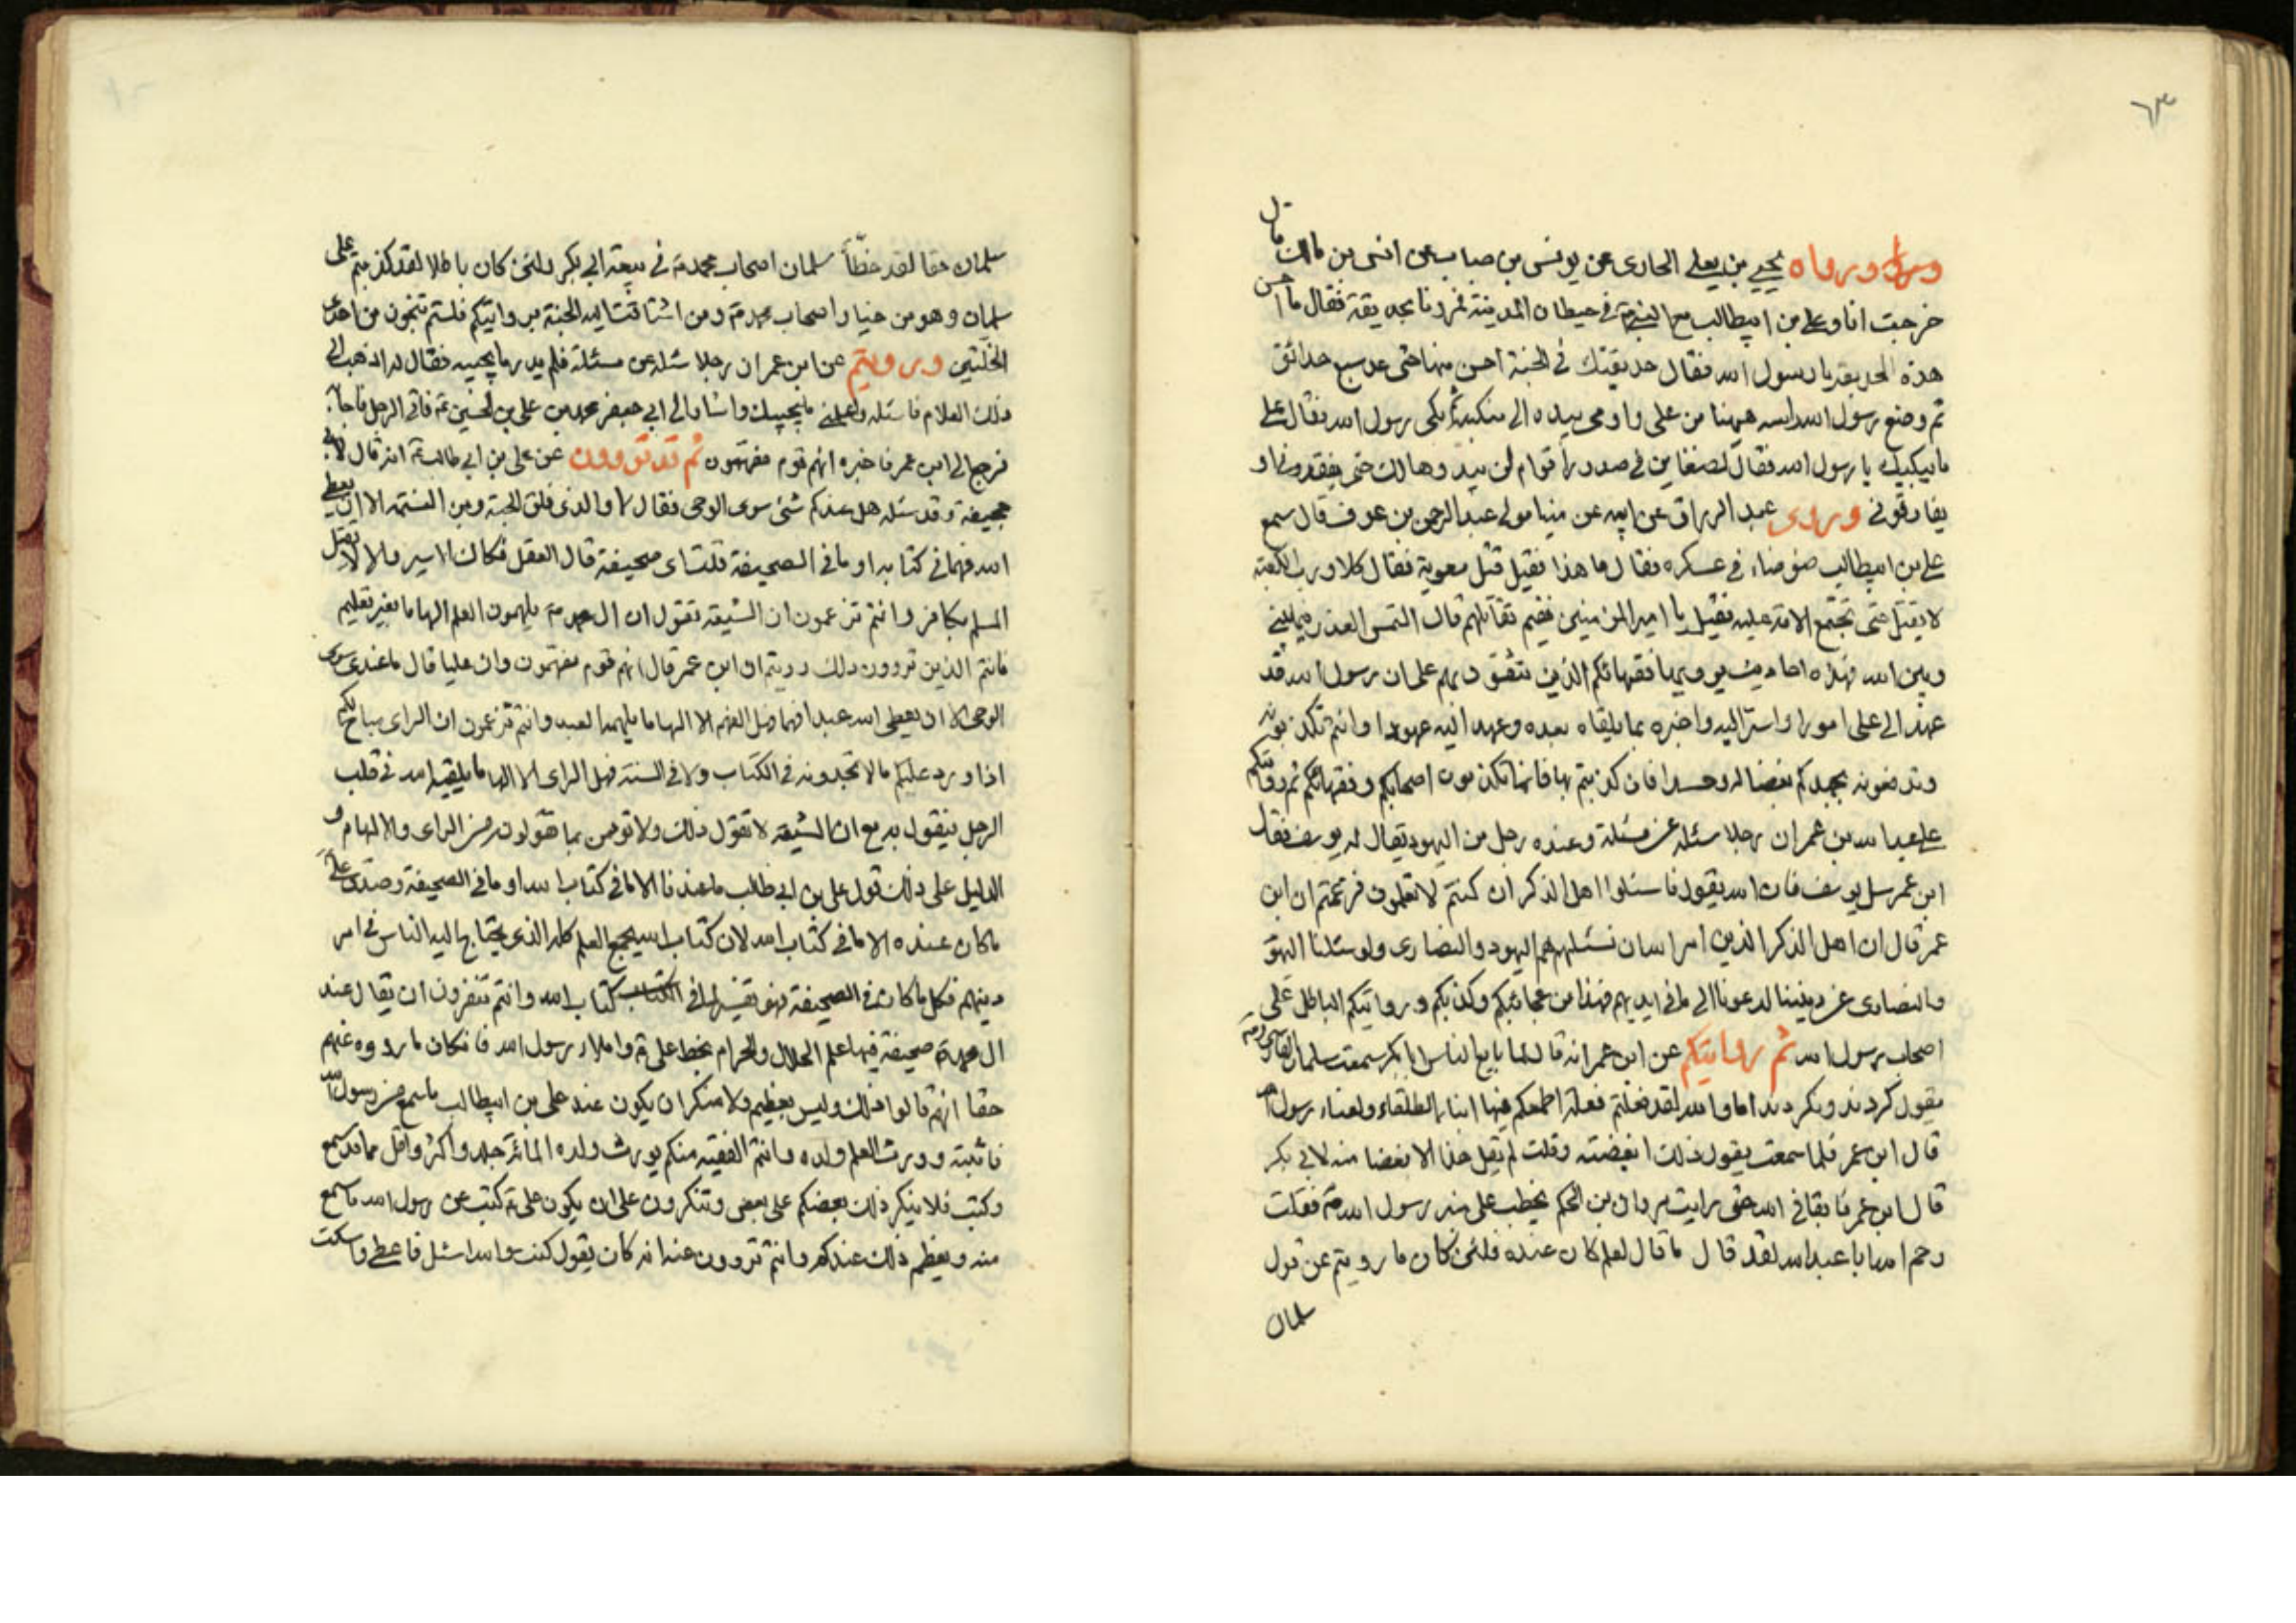 ٦٣
ورواه يحيى بن يعلى الحارى عن يونس بن صباب عن انس بن مالك قال
خرجت انا وعلى بن ابيطالب مع النبى ص فى حيطان المدينة فمررنا بحديقة فقال ما احسن
هذه الحديقة يا رسول الله فقال حديقتك فى الجنة احسن منها حتى عد سبع حدائق
ثم وضع رسول الله راسه هيهنا من على واومى بيده الى منكبه ثم بكى رسول الله فقال على
ما يبكيك يا رسول الله فقال لضغاين فى صدور اقوام لن يبدوها لك حتى يفقدونى او
يفارقونى وروى عبد الرزاق عن ابيه عن مينا مولى عبد الرحمن بن عوف قال سمع
على بن ابيطالب ضوضاء فى عسكره فقال ما هذا فقيل قتل معوية فقال كلا ورب الكعبة
لا يقتل حتى تجتمع الامة عليه فقيل يا امير المؤمنين ففيم تقاتلهم قال التمس العذر فيما بينى
وبين الله فهذه احاديث يرويها فقهائكم الذين تتفق ديهم على ان رسول الله قد
عهد الى على امورا واستر اليه واخبره بما يلقاه بعده وعهد اليه عهودا وانتم تكذبونه
وتدفعونه بجهدكم بغضا له وحسدا فان كذبتم بها فانما تكذبون اصحابكم وفقهائكم ثم روايتكم
على عبد الله بن عمر ان رجلا سئله عن مسئلة وعنده رجل من اليهود يقال له يوسف فقال
ابن عمر سل يوسف فان الله يقول فاسئلوا اهل الذكر ان كنتم لا تعلمون فزعمتم ان ابن
عمر قال ان اهل الذكر الذين امر الله ان نسئلهم هم اليهود والنصارى ولو سئلنا اليهو
والنصارى عن ديننا لدعونا الى ما فى ايديهم فهذا من عجائبكم وكذبكم وروايتكم الباطل على
اصحاب رسول الله ثم روايتكم عن ابن عمر انه قال لما بايع الناس ابا بكر سمعت سلمان الفارسى
يقول كرديد ونكرديد اما والله لقد فعلتم فعلة اطمعكم فيها ابناء الطلقاء ولعناء رسول الله
قال ابن عمر فلما سمعت يقول ذلك ابغضته وقلت لم يقل هذا الا بغضا منه لابى بكر
قال ابن عمر فابقانى الله حتى رايت مروان بن الحكم يخطب على منبر رسول الله ص فقلت
رحم الله ابا عبد الله لقد قال ما قال لعلم كان عنده فلئن كان ما رويتم عن قول
سلمان
سلمان حقا لقد خطّأ سلمان اصحاب محمد ص فى بيعة ابى بكر ولئن كان باطلا لقد كذبتم على
سلمان وهو من خيار اصحاب محمد ص ومن اشتاقت اليه الجنة بروايتكم فلستم تنجون من احدى
الخلتين ورويتم عن ابن عمر ان رجلا سئله عن مسئلة فلم يدر ما يجيبه فقال له اذهب الى
ذلك الغلام فاسئله واعلمنى ما يجيبك واشار الى ابى جعفر محمد بن على بن الحسين ع فاتى الرجل فاجابه
فرجع الى ابن عمر فاخبره انهم قوم مفهمون ثم قد تروون عن على بن ابى طالب ع انه قال لابى
جحيفة وقد سئله هل عندكم شئ سوى الوحى فقال لا والذى فلق الحبة وبرء النسمة الا ان يعطى
الله فهما فى كتابه او ما فى الصحيفة قلت اى صحيفة قال العقل فكاك الاسير ولا لا يقتل
المسلم بكافر وانتم تزعمون ان الشيعة تقول ان ال محمد ص يلهمون العلم الهاما بغير تعليم
فانتم الذين تروون ذلك رويتم ان ابن عمر قال انهم قوم مفهمون وان عليا قال ما عندى سوى
الوحى الا ان يعطى الله عبدا فهما فهل الفهم الا الهاما يلهمه العبد وانتم تزعمون ان الراى مباح لكم
اذا ورد عليكم ما لا تجدونه فى الكتاب ولا فى السنة فهل الراى الا الهاما يلقيه الله فى قلب
الرجل فيقول به مع ان الشيعة لا تقول ذلك ولا تومن بما تقولون من الراى والالهام و
الدليل على ذلك قول على بن ابى طالب ما عندنا الا ما فى كتاب الله او ما فى الصحيفة وصدق على ع
ما كان عنده الا ما فى كتاب الله لان كتاب الله يجمع العلم كله الذى يحتاج اليه الناس فى امر
دينهم فكل ما كان فى الصحيفة فهو تفسير لما فى الكتاب كتاب الله وانتم تنفرون ان يقال عند
ال محمد ص صحيفة فيها علم الحلال والحرام بخط على ع واملاء رسول الله فان كان ما رووه عنهم
حقا انهم قالوا ذلك وليس بعظيم ولا منكر ان يكون عند على بن ابيطالب ما سمع من رسول الله
فاثبته وورث العلم ولده وانتم الفقيه منكم يورث ولده المائة جلد واكثر واقل مما قد سمع
وكتب فلا ينكر ذلك بعضكم على بعض وتنكرون على ان يكون على ع كتب عن رسول الله ما سمع
منه ويعظم ذلك عندكم وانتم تروون عنه انه كان يقول كنت والله اسئل فاعطى واسكت